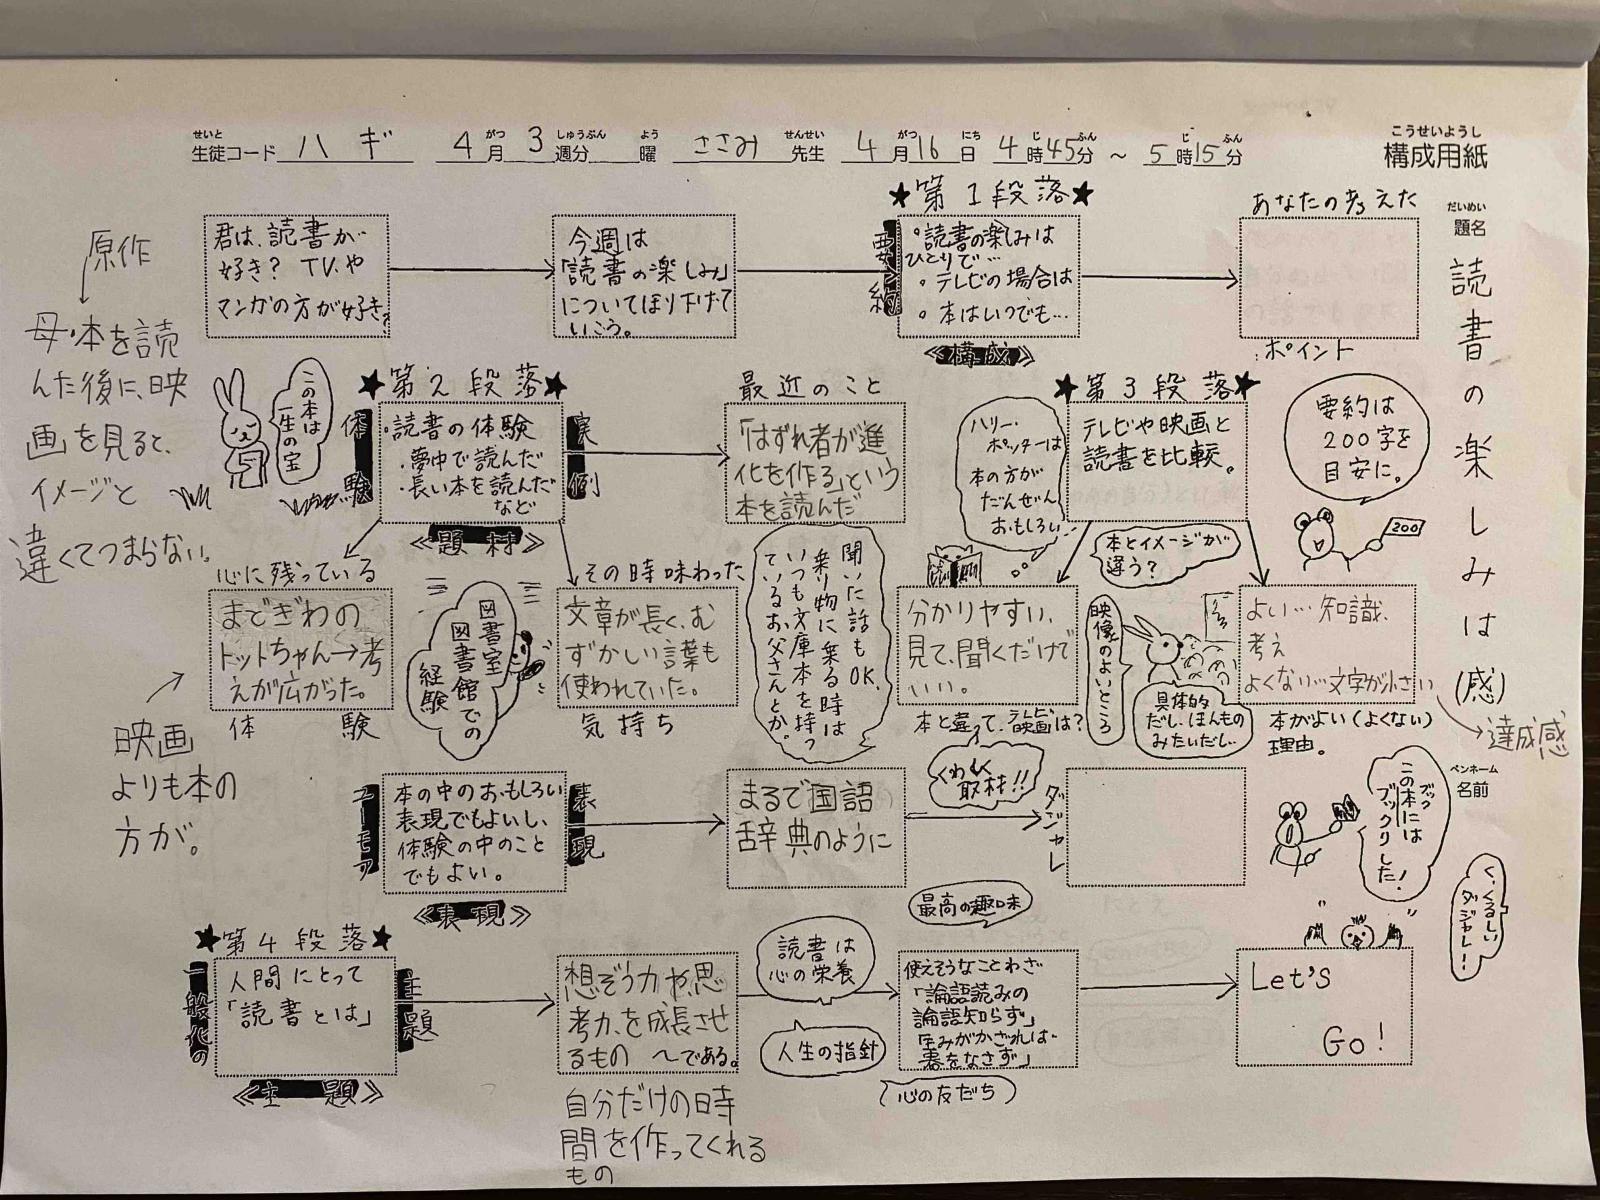 せいと
生徒コード ハギ 4月 3週分 曜 ささみ 先生 4月16日 4時45分 ～ 5時15分
がつ しゅうぶん よう せんせい がつ にち じ ふん じ ふん
こうせいようし
構成用紙
だいめい
題名
読書の楽しみは(感)
ペンネーム
名前
君は、読書が
好き? TV、や
マンガの方が好き?
今週は
「読書の楽しみ」
についてほり下げて
いこう。
★第1段落★
要約
・読書の楽しみは
ひとりで…
・テレビの場合は
・本はいつでも…
≪構成≫
あなたの考えた
ポイント
原作
母・本を読
んだ後に、映
画を見ると、
イメージと
違くてつまらない。
この本は
一生の宝
★第2段落★
体験
・読書の体験
・夢中で読んだ
・長い本を読んだ
など
実例
≪題材≫
最近のこと
「はずれ者が進
化を作る」という
本を読んだ
ハリー・
ポッターは
本の方が
だんぜん
おもしろい
★第3段落★
テレビや映画と
読書を比較。
要約は
200字を
目安に。
200
本とイメージが
違う?
心に残っている
まどぎわの
トットちゃん→考
えが広がった。
体験
図書室
図書館での
経験
その時味わった
文章が長く、む
ずかしい言葉も
使われていた。
気持ち
聞いた話もOK.
乗り物に乗る時は
いつも文庫本を持っ
ているお父さんとか。
分かりやすい、
見て、聞くだけで
いい。
本と違って、テレビ、映画は?
映像のよいところ
具体的
だし、ほんもの
みたいだし
よい…知識、
考え
よくない…文字が小さい
本がよい(よくない)
理由。
達成感
映画
よりも本の
方が。
ユーモア
本の中のおもしろい
表現でもよいし、
体験の中のこと
でもよい。
表現
≪表現≫
まるで国語
辞典のように
くわしく
取材!!
ダジャレ
この本には
ブックリした!
ブック
く、くるしい
ダジャレ!
★第4段落★
一般化の
人間にとって
「読書とは」
主題
≪主題≫
想ぞう力や、思
考力、を成長させ
るもの ～である。
自分だけの時
間を作ってくれる
もの
読書は
心の栄養
最高の趣味
人生の指針
心の友だち
使えそうなことわざ
「論語読みの
論語知らず」
玉みがかざれば
器をなさず」
Let's
Go!